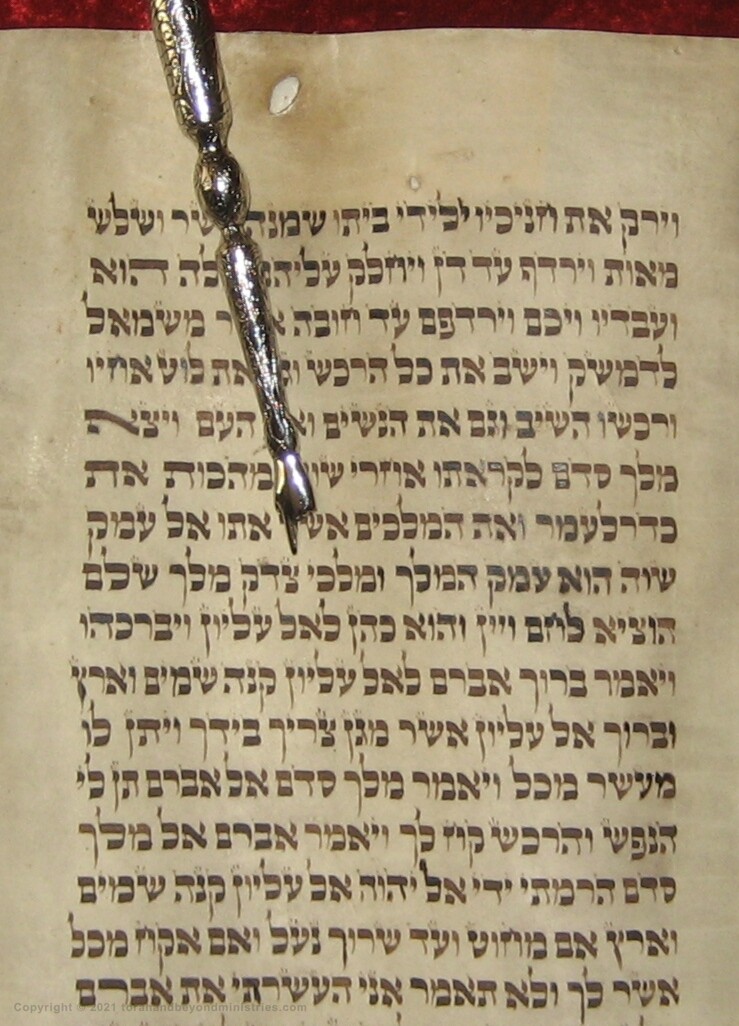 וירק את חניכיו ילידי ביתו שמנה שר ושלש
מאות וירדף עד דן ויחלק עליהם לה הוא
ועבדיו ויכם וירדפם עד חובה משמאל
לדמשק וישב את כל הרכש את לוט אחיו
ורכשו השיב וגם את הנשים העם ויצא
מלך סדם לקראתו אחרי מהכות את
כדרלעמר ואת המלכים אשר אתו אל עמק
שוה הוא עמק המלך ומלכי צדק מלך שלם
הוציא לחם ויין והוא כהן לאל עליון ויברכהו
ויאמר ברוך אברם לאל עליון קנה שמים וארץ
וברוך אל עליון אשר מגן צריך בידך ויתן לו
מעשר מכל ויאמר מלך סדם אל אברם תן לי
הנפש והרכש קח לך ויאמר אברם אל מלך
סדם הרמתי ידי אל יהוה אל עליון קנה שמים
וארץ אם מחוט ועד שרוך נעל ואם אקח מכל
אשר לך ולא תאמר אני העשרתי את אברם
Copyright © 2021 torahandbeyondministries.com